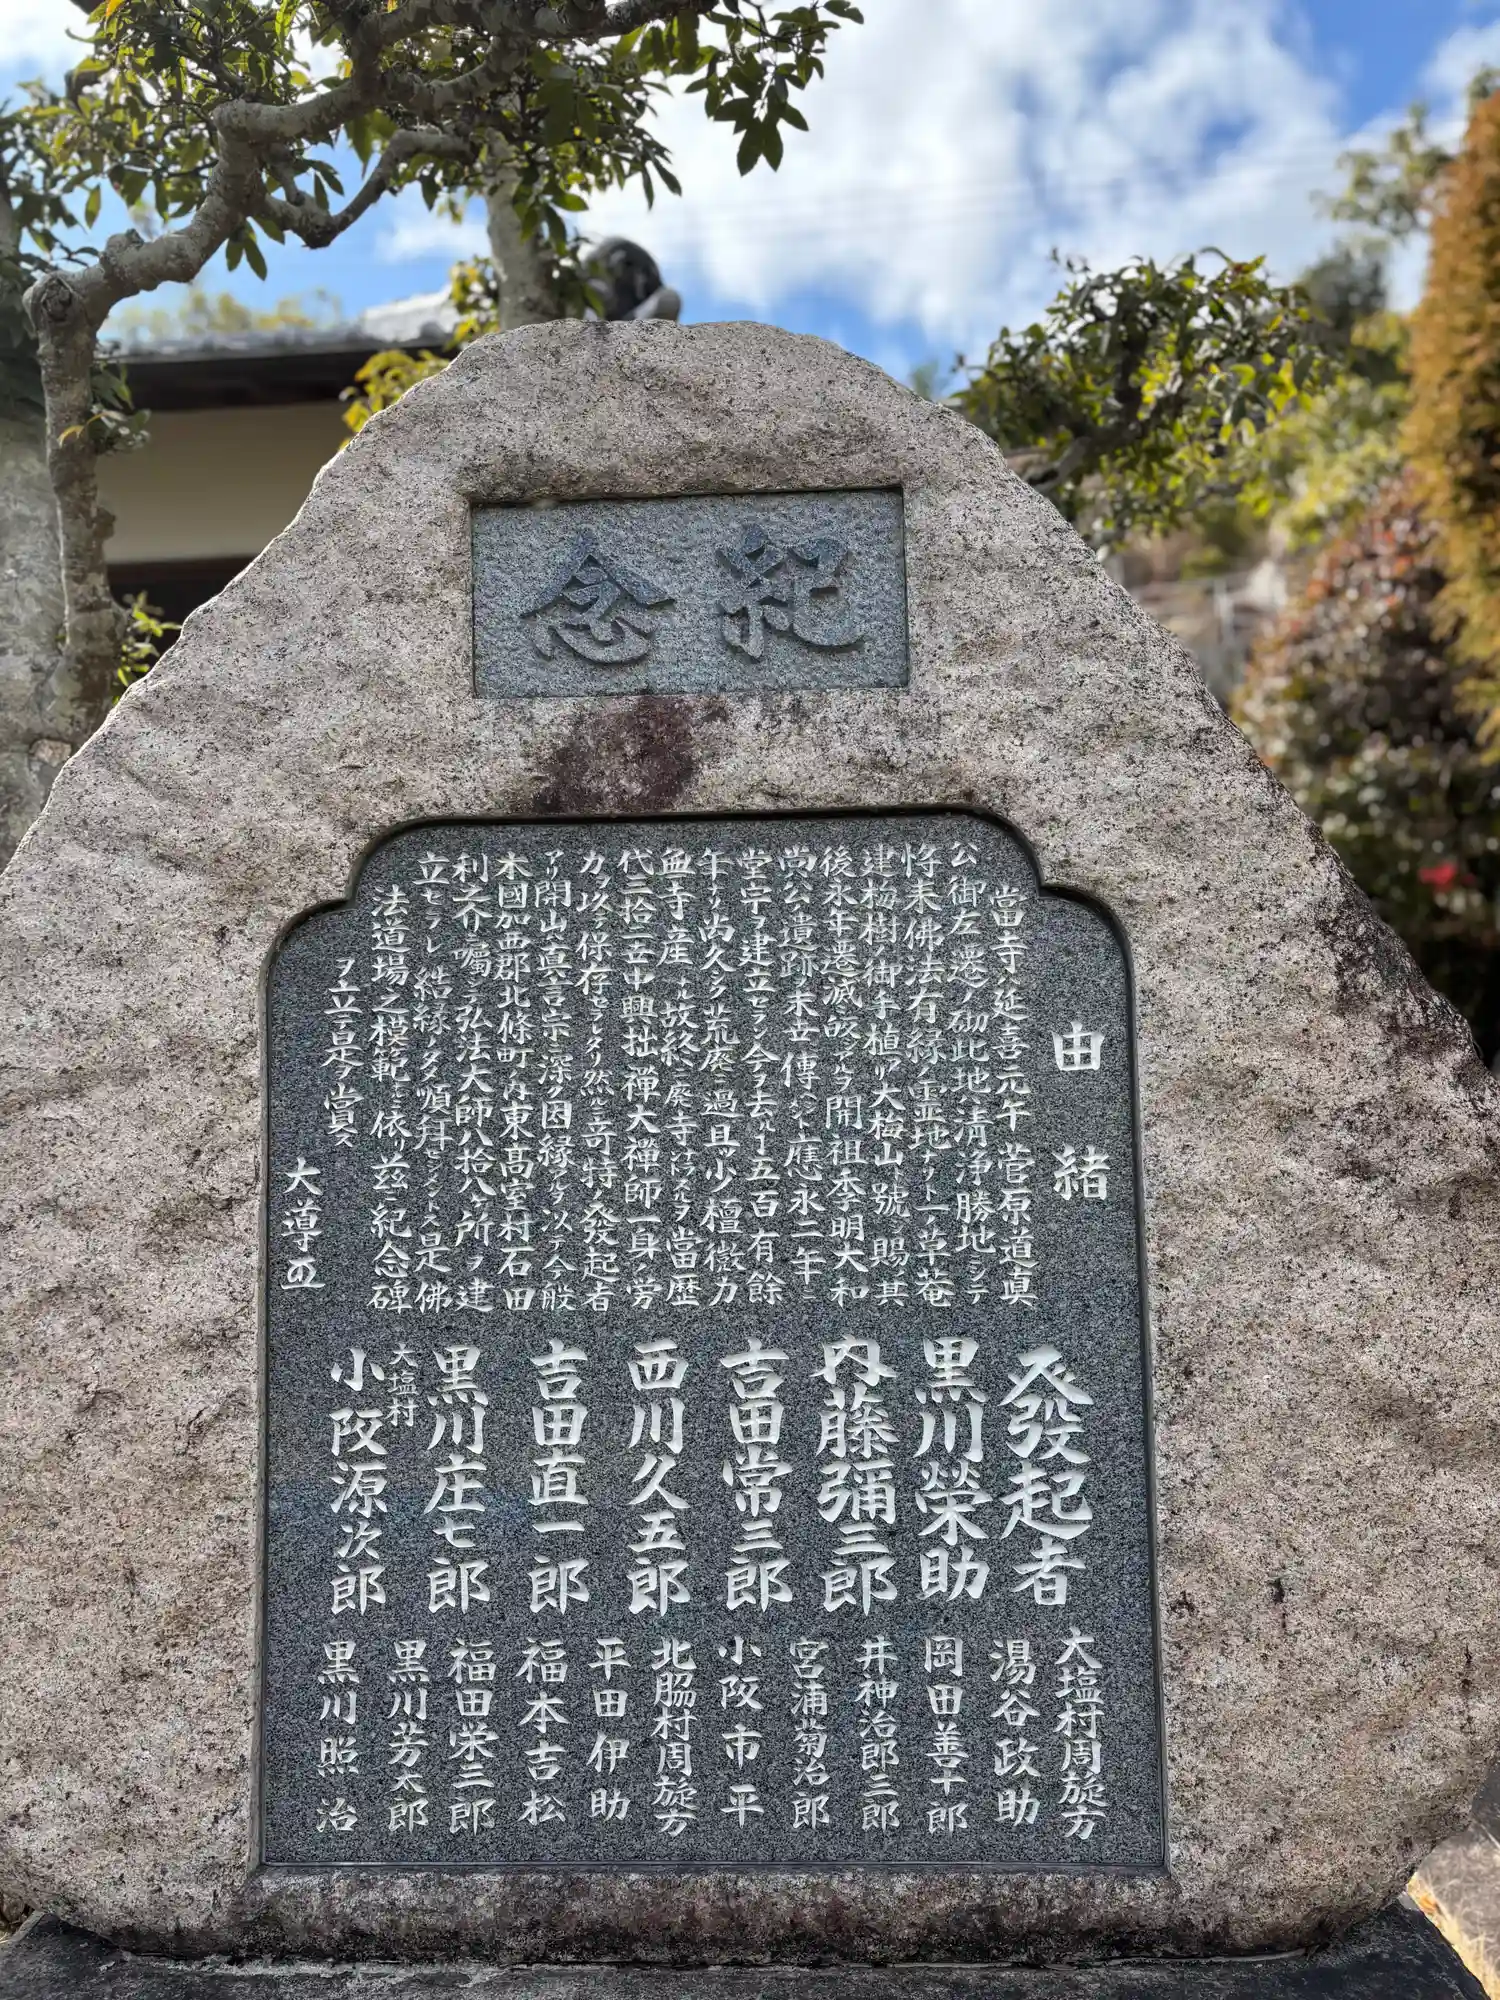 紀念
由緒
當寺ノ延喜元年菅原道眞
公御左遷ノ砌此地ハ清浄勝地ニシテ
将来佛法有縁ノ霊地ナリトテ一ノ草菴
建梅樹御手植アリ大梅山ト號シ賜其
後永年悪滅ノ アルヲ開祖李明大和
尚公遺跡ノ末世傳ヘント應永二年ニ
堂宇ヲ建立セラン今ヲ去ル事五百有餘
年ナリ尚久シク荒廃ニ過且ツ少檀微力
無寺産ナル故終ニ廃寺 ナラントスルヲ當歴
代三拾二世中興拙禅大禅師一身ノ労
力ヲ以テ保存セラレタリ然ルニ奇特ノ發起者
アリ開山眞言宗ニ深ク因縁アルヲ以テ今般
本國加西郡北條町ノ内東高室村石田
利之介ニ囑シテ弘法大師八拾八ケ所ヲ建
立セラレ結縁ノタメ順拜セシメントス是佛
法道場之模範ニ依リ茲ニ紀念碑
ヲ立テ是ヲ賞ス
大導
發起者
黒川榮助
内藤彌三郎
吉田常三郎
西川久五郎
吉田直一郎
黒川庄七郎
大塩村
小阪源次郎
大塩村周旋方
湯谷政助
岡田善十郎
井神治郎三郎
宮浦菊治郎
小阪市平
北脇村周旋方
平田伊助
福本吉松
福田栄二郎
黒川芳太郎
黒川照治